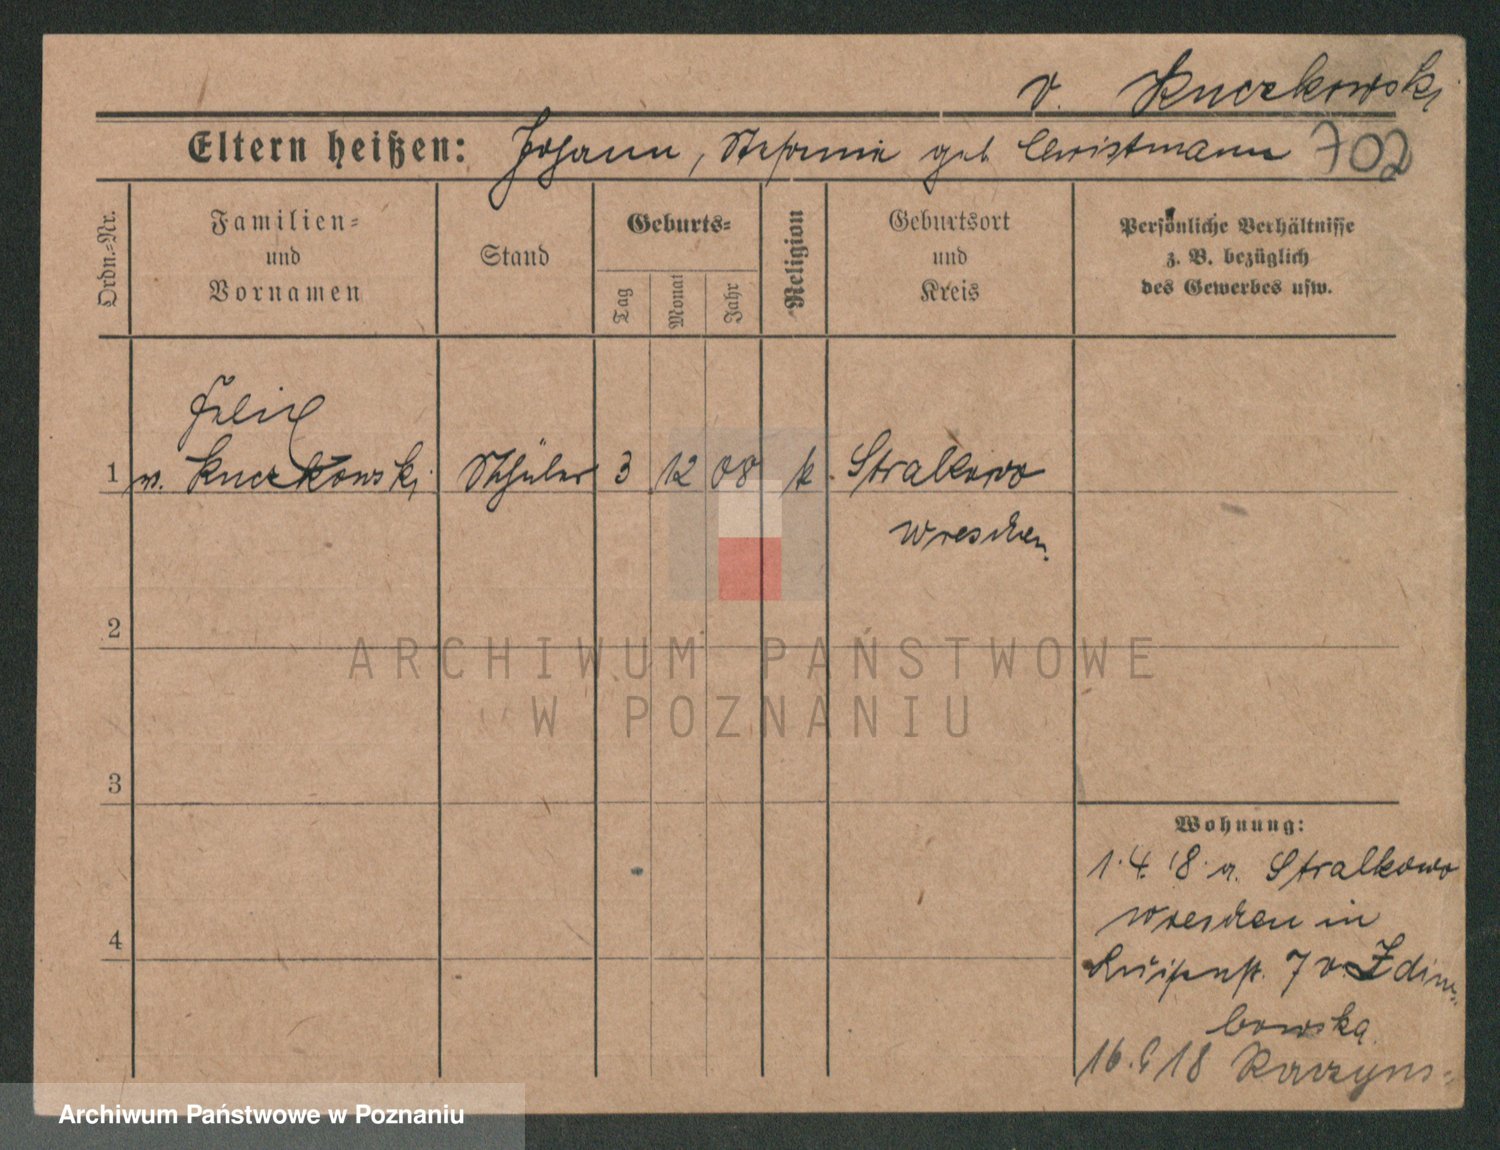 v. Kuczkowski
Eltern heißen: Johann, Stefania geb Christmann 702
Ordn.-Nr.
Familien-
und
Vornamen
Stand
Geburts-
Tag
Monat
Jahr
Religion
Geburtsort
und
Kreis
Persönliche Verhältnisse
z. B. bezüglich
des Gewerbes usw.
Felix
1 v. Kuczkowski Schüler 3 12 08 k. Stralkowo
Wreschen
2
ARCHIWUM PAŃSTWOWE
W POZNANIU
3
Wohnung:
1.4.18. a. Stralkowo
Wreschen in
4
Luisenst. 7 v. Zdim-
bowska
16. 18
Archiwum Państwowe w Poznaniu